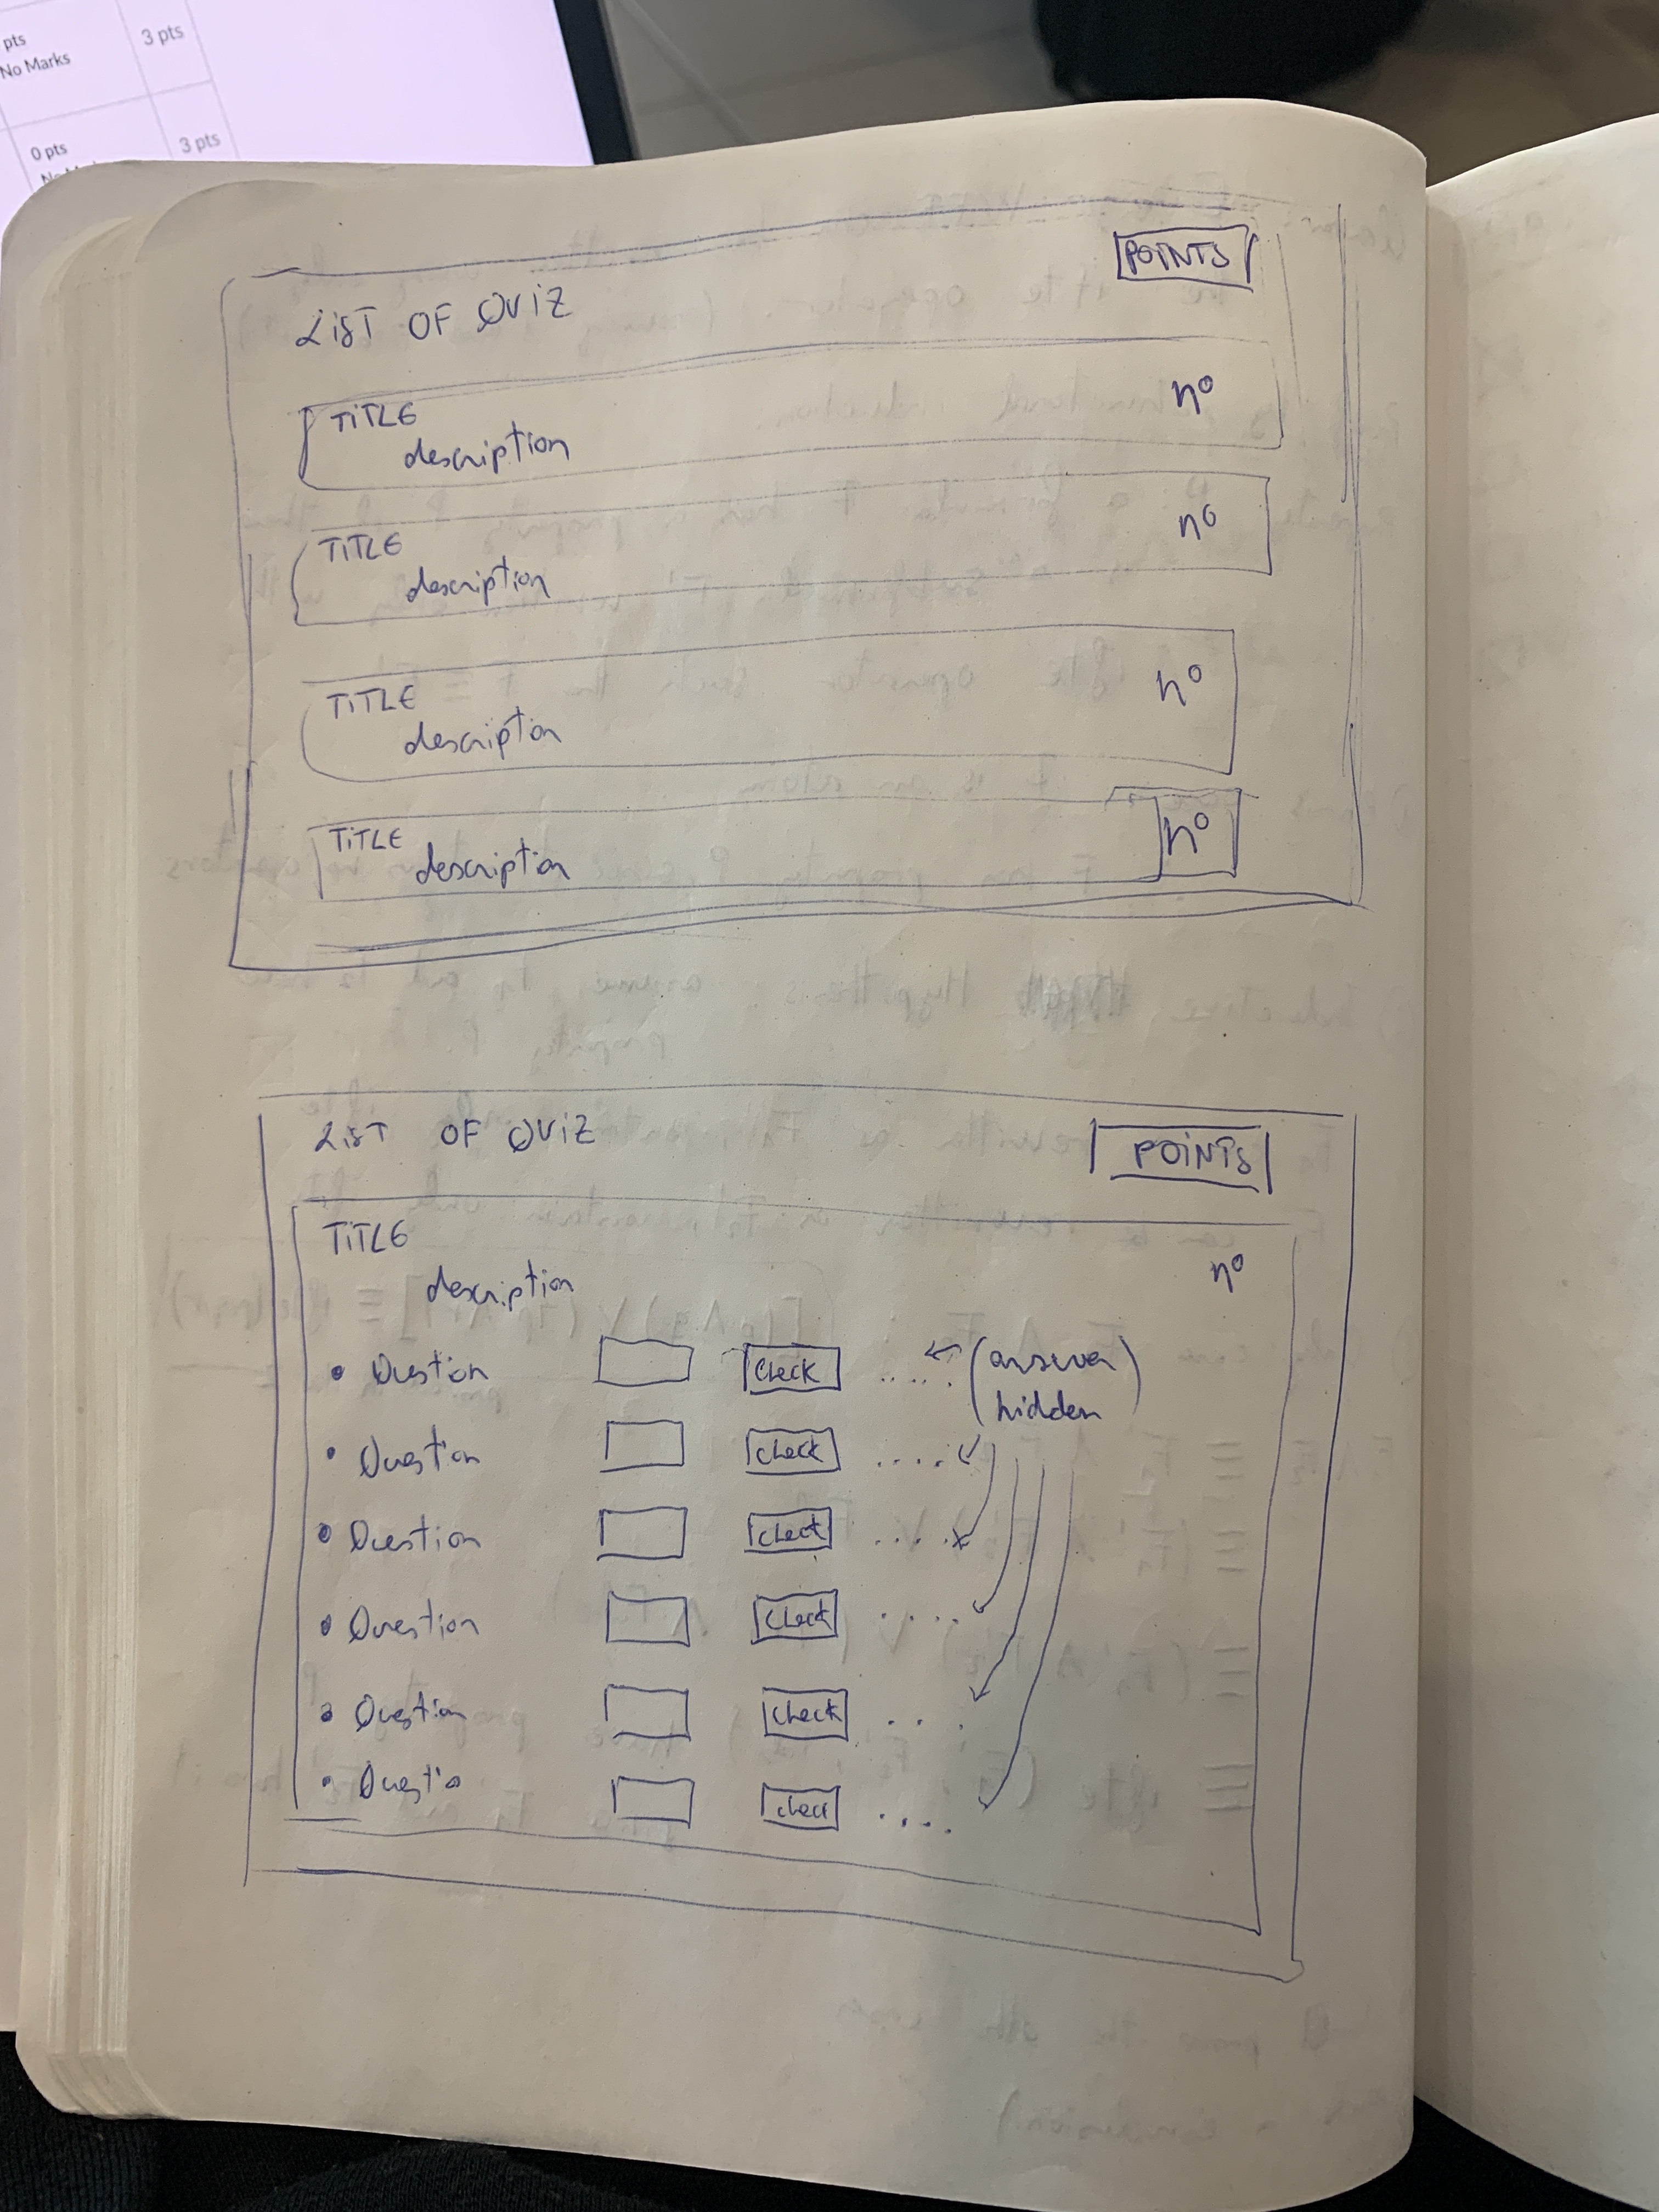 pts
No Marks
3 pts
0 pts
3 pts
POINTS
LIST OF QUIZ
TITLE
nº
description
TITLE
nº
description
TITLE
nº
description
TITLE
nº
description
LIST OF QUIZ
POINTS
TITLE
description
nº
• Question check ..... ← (answer
hidden)
• Question check ....
• Question check ....
• Question check ....
• Question check ...
• Questio check ....